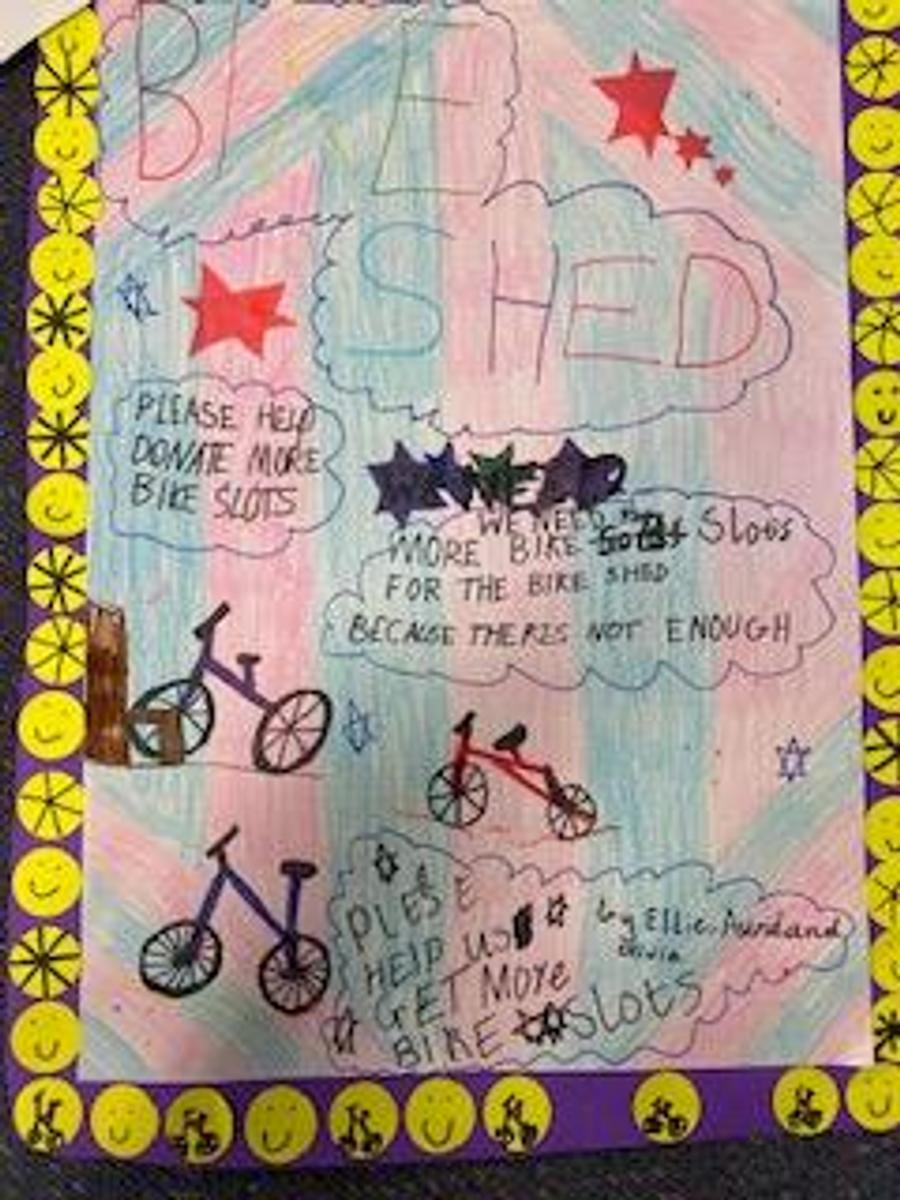 BI E
SHED
PLEASE HELP
DONATE MORE
BIKE SLOTS
WE NEED
MORE BIKE Slots
FOR THE BIKE SHED
BECAUSE THERES NOT ENOUGH
PLESE
HElP us
GET More
BIKE slots
by Ellie, and
Olivia